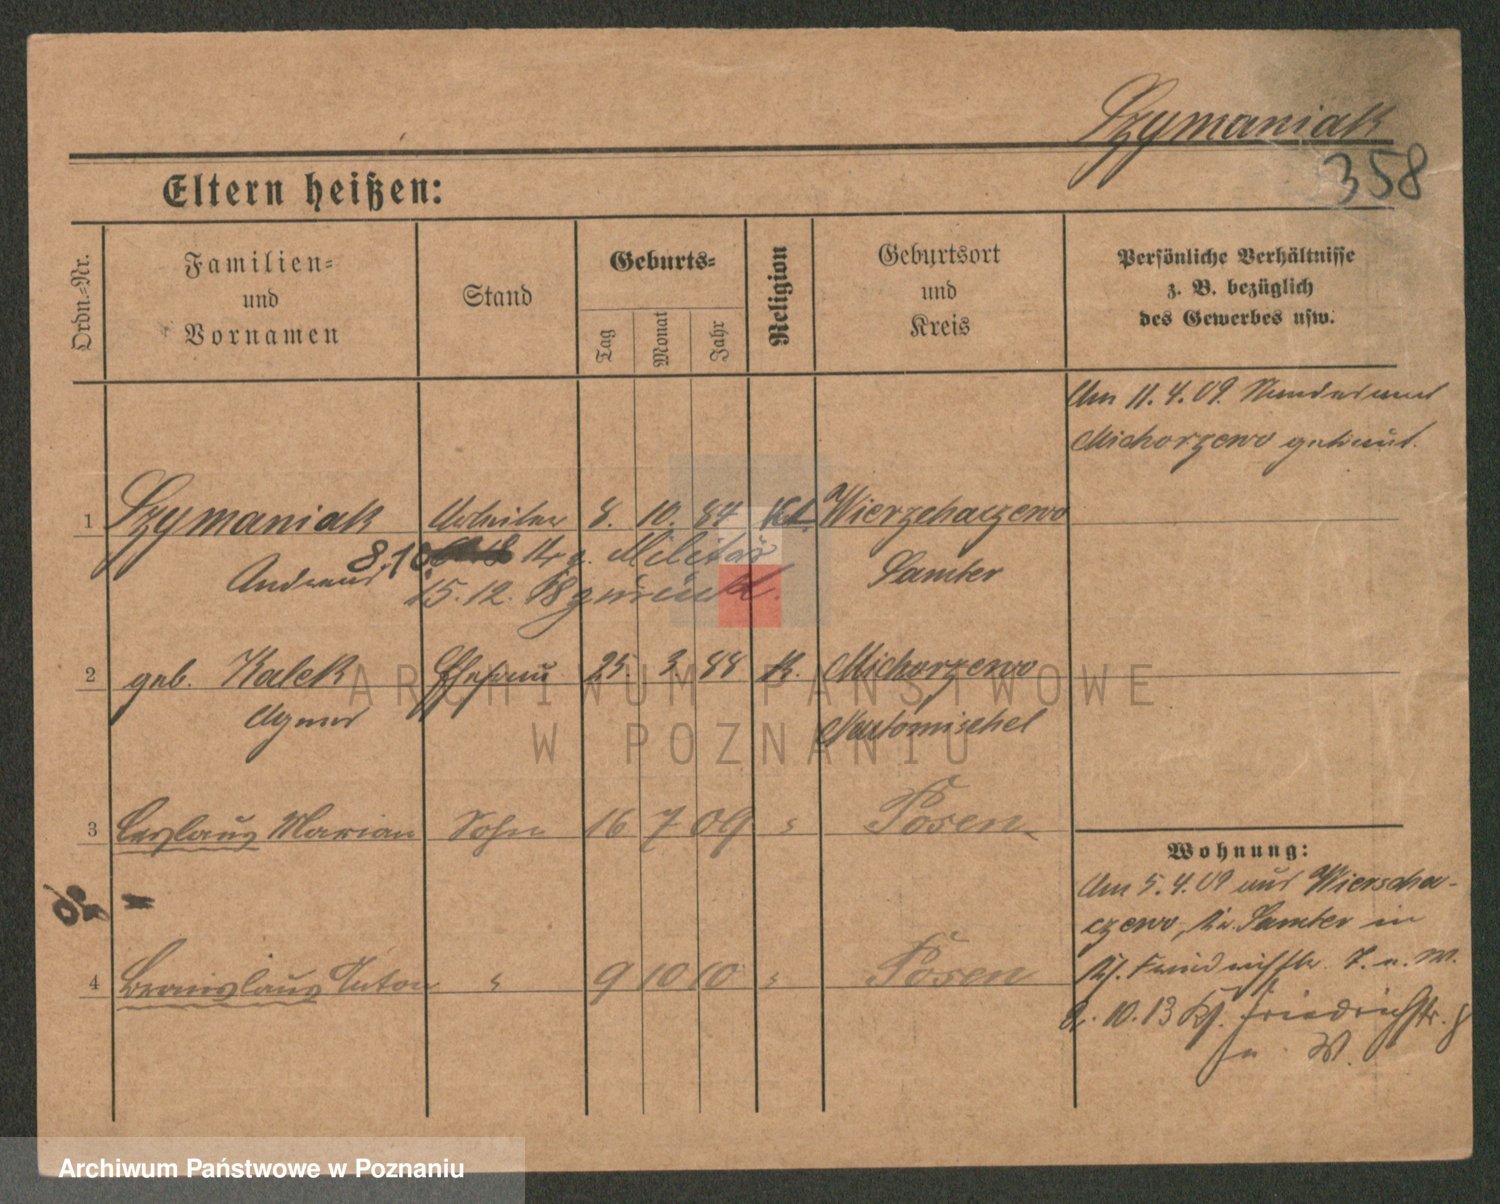 Szymaniak
358
Eltern heißen:
Ordn.-Nr.
Familien-
und
Vornamen
Stand
Geburts-
Tag
Monat
Jahr
Religion
Geburtsort
und
Kreis
Persönliche Verhältnisse
z. B. bezüglich
des Gewerbes usw.
Am 11.4.09. Standesamt
Michorzewo getraut.
1 Szymaniak Arbeiter 8. 10. 84 Kt. Wierzchaczewo
Andreas 8.10. Militär Samter
15.12.18 zurück.
2 geb. Kalek Ehefrau 25. 3. 88 K. Michorzewo
Agnes Neutomischel
3 Ceslaus Marian Sohn 16 7 09 " Posen
4 Bronislaus Anton " 9 10 10 " Posen
Wohnung:
Am 5.4.09 aus Wierzcha-
czewo, Kr. Samter in
Friedrichstr. 7. u. W.
10.13 Friedrichstr. 8
u. W.
ARCHIWUM PAŃSTWOWE
W POZNANIU
Archiwum Państwowe w Poznaniu